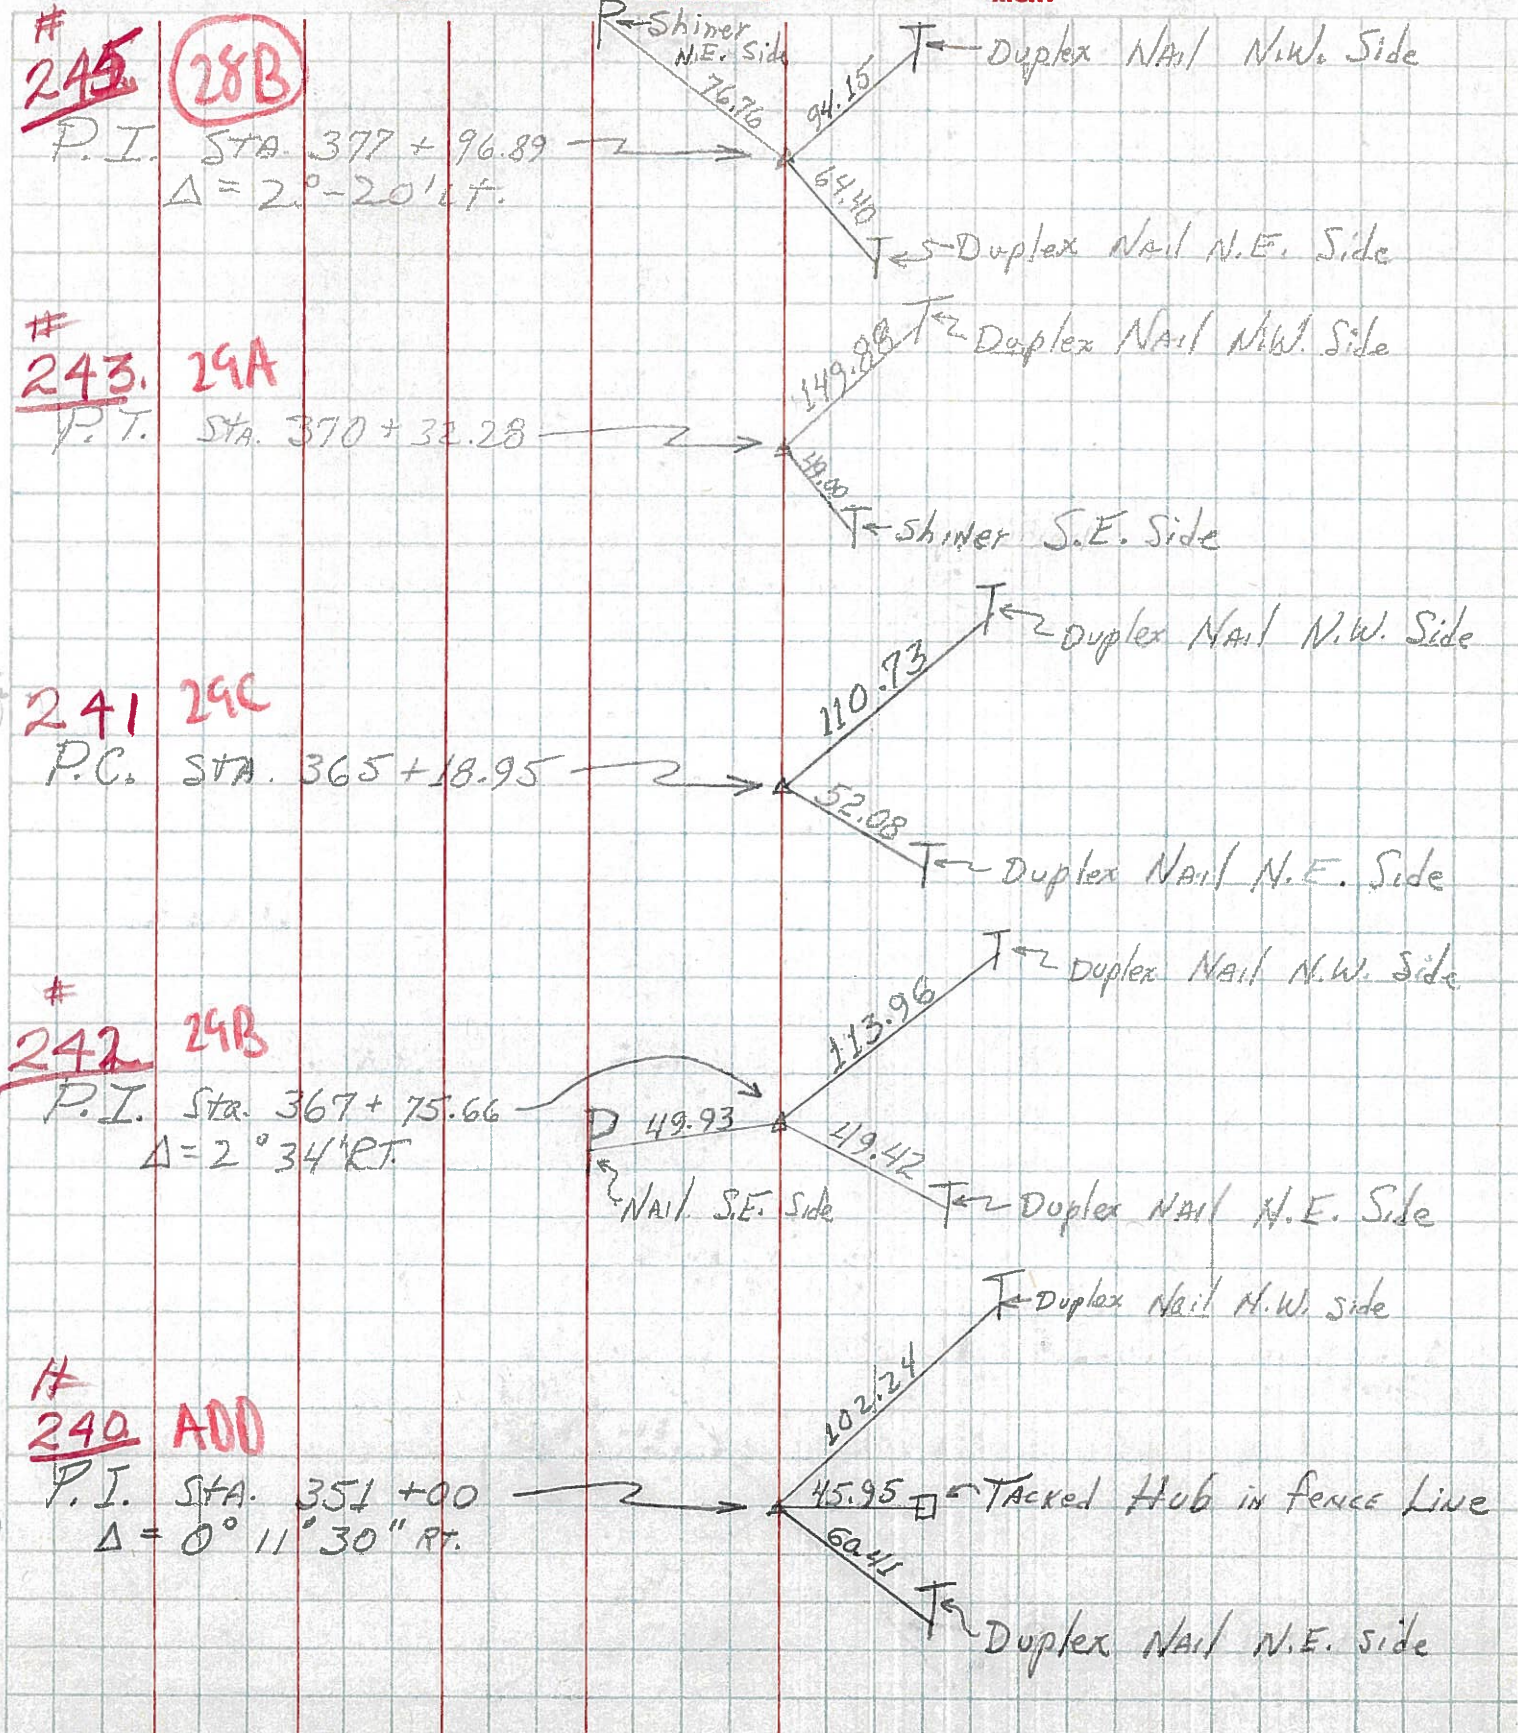 #
245. 28B
P.I. STA. 377 + 96.89
Δ = 2°-20' Lt.
P ← Shiner
N.E. Side
76.76
94.15
T ← Duplex NAil N.W. Side
64.40
T ← Duplex NAil N.E. Side
#
243. 29A
P.T. STA. 370 + 32.28
149.88
T ← Duplex NAil N.W. Side
49.00
T ← ShiNer S.E. Side
241 29C
P.C. STA. 365 + 18.95
110.73
T ← Duplex NAil N.W. Side
52.08
T ← Duplex NAil N.E. Side
#
242 29B
P.I. Sta. 367 + 75.66
Δ = 2°34' RT.
113.96
T ← Duplex NAil N.W. Side
P 49.93
NAil S.E. Side
49.42
T ← Duplex NAil N.E. Side
#
240. ADD
P.I. STA. 351 +00
Δ = 0° 11' 30" RT.
102.24
T ← Duplex Nail N.W. side
45.95 ← TAcked Hub iN feNcE LiNe
60.41
T ← Duplex NAil N.E. side